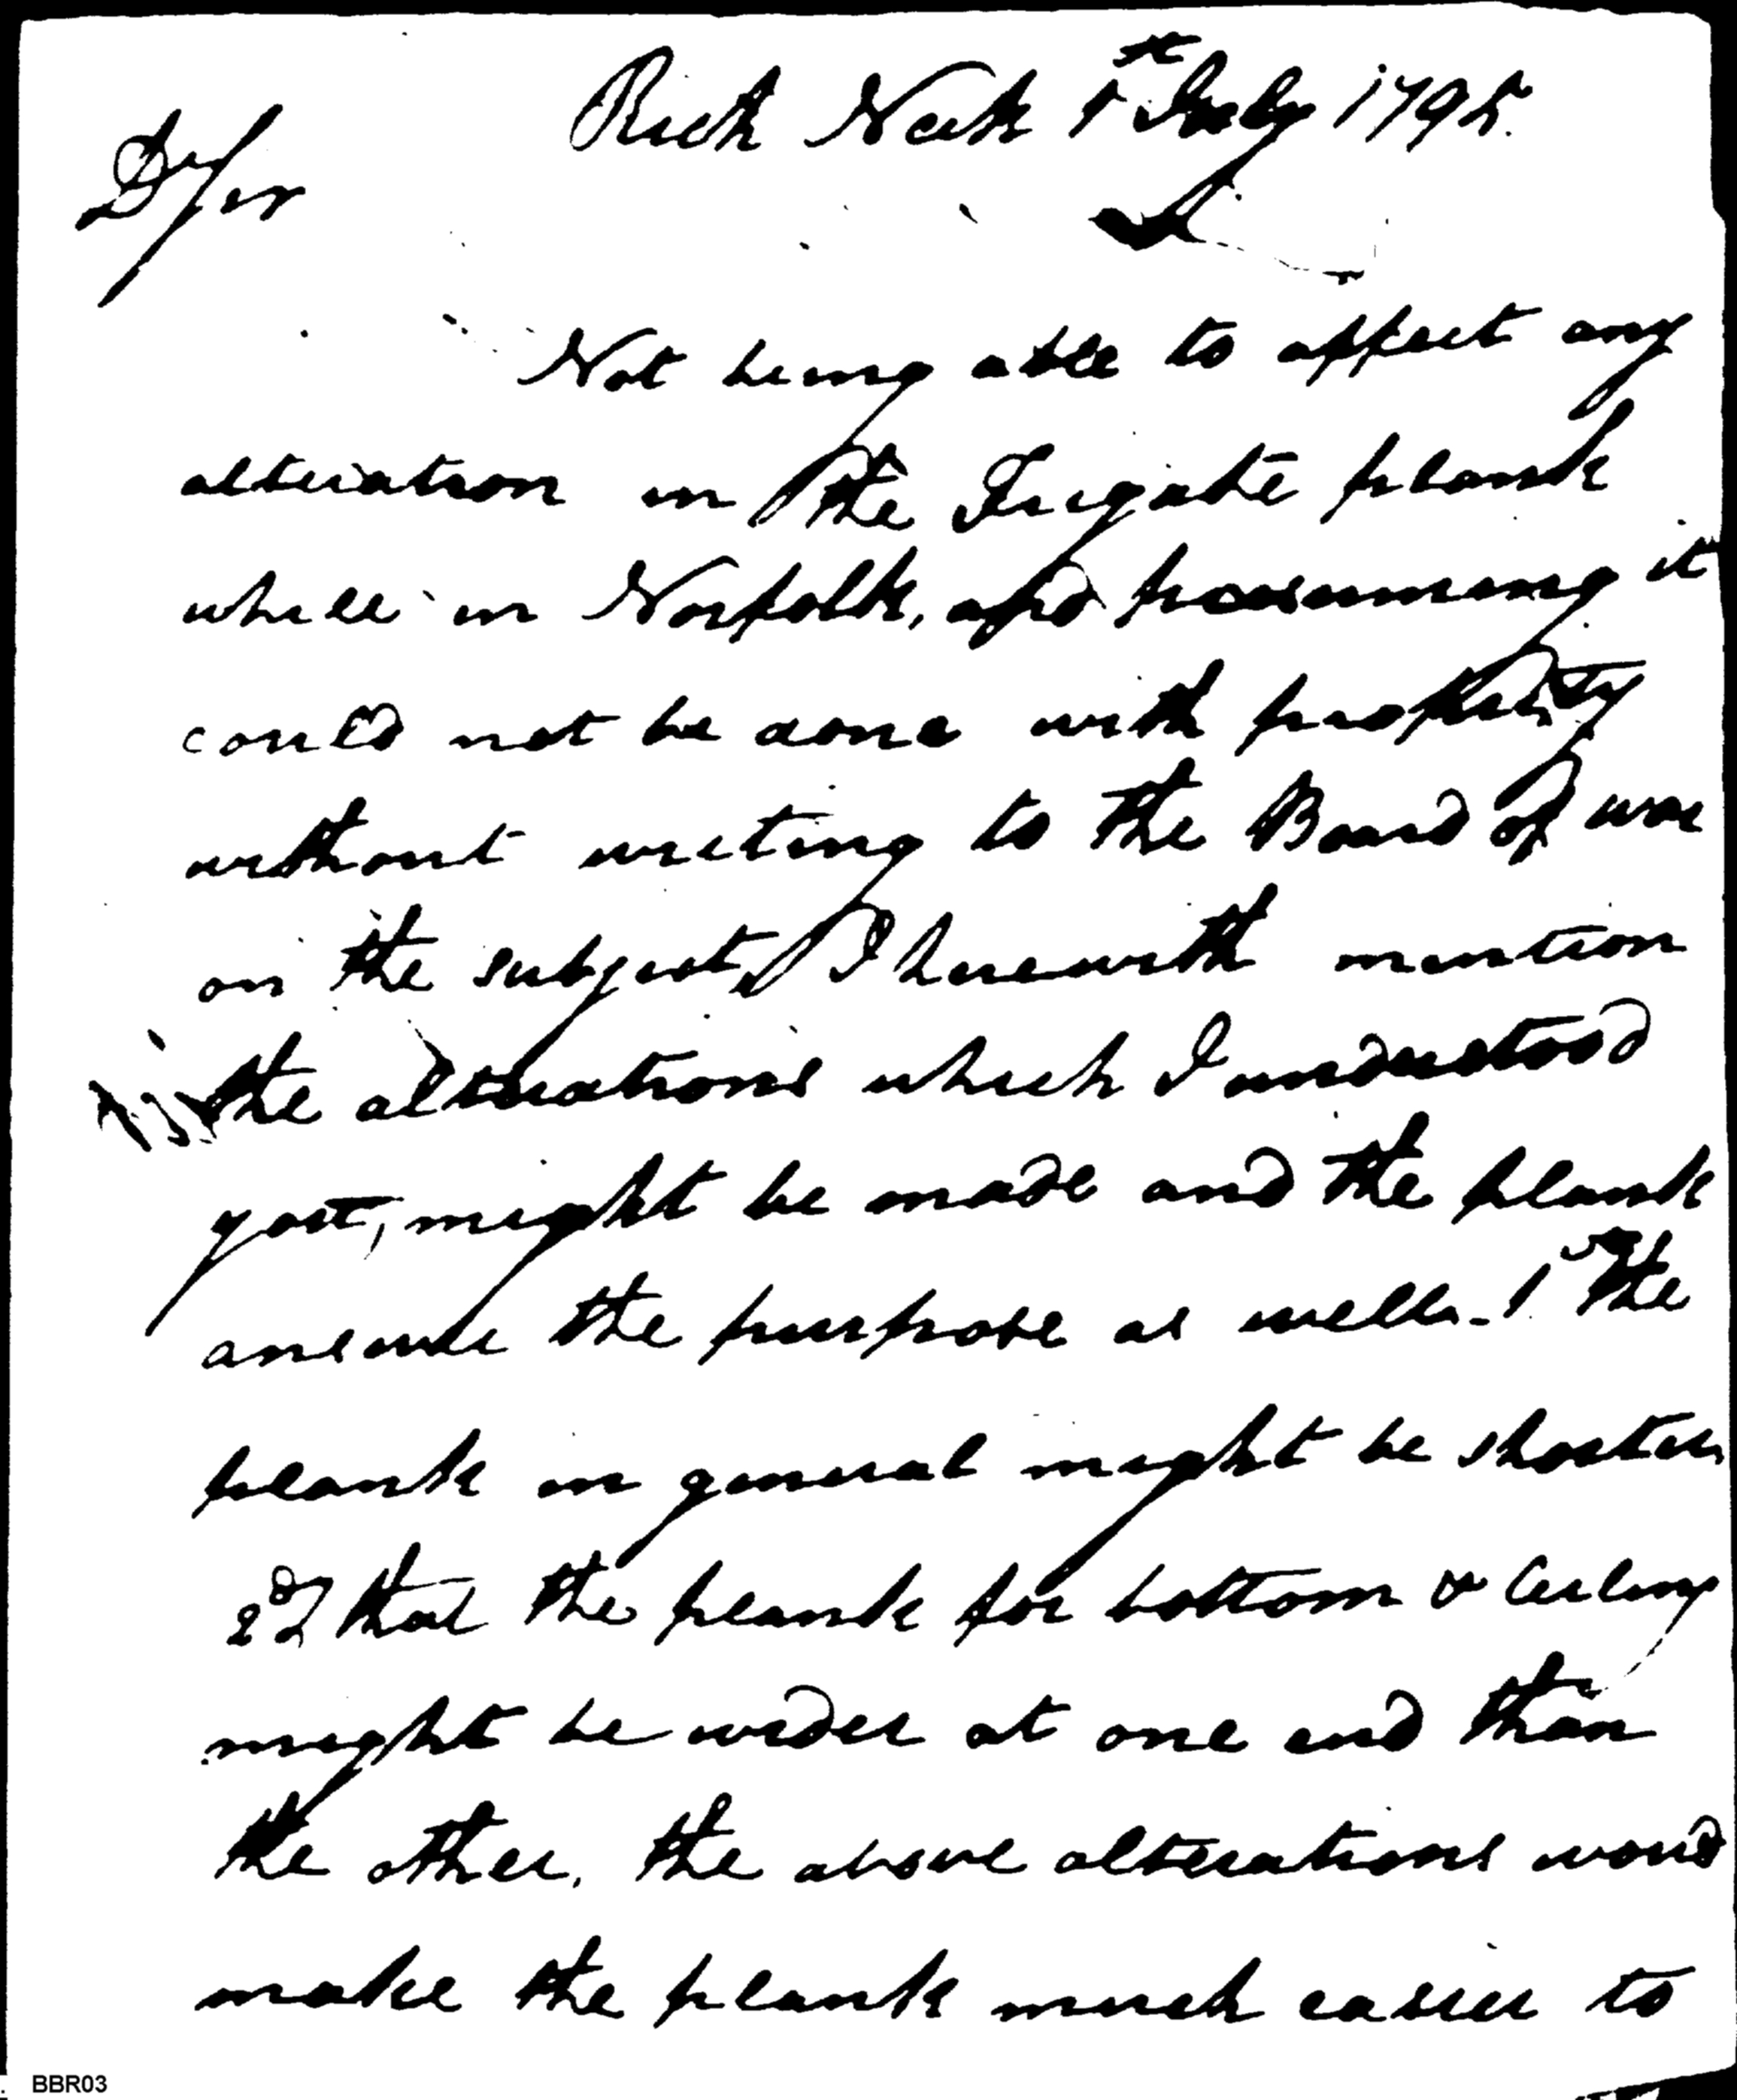 Rich Neck 1st July 1795.
Dr Sir
Not being able to affect any
alteration in the Frigate plank
while in Norfolk, and presuming it
could not be done with propriety
without writing to the Board of war
on the subject, I herewith mention
the alterations which I understood
yest, might be made and the plank
answer the purpose as well. 1st The
plank in general might be shorter,
2d that the plank for bottom or Ceiling
might be wider at one end than
the other. the above alterations woud
make the plank much easier to
BBR03